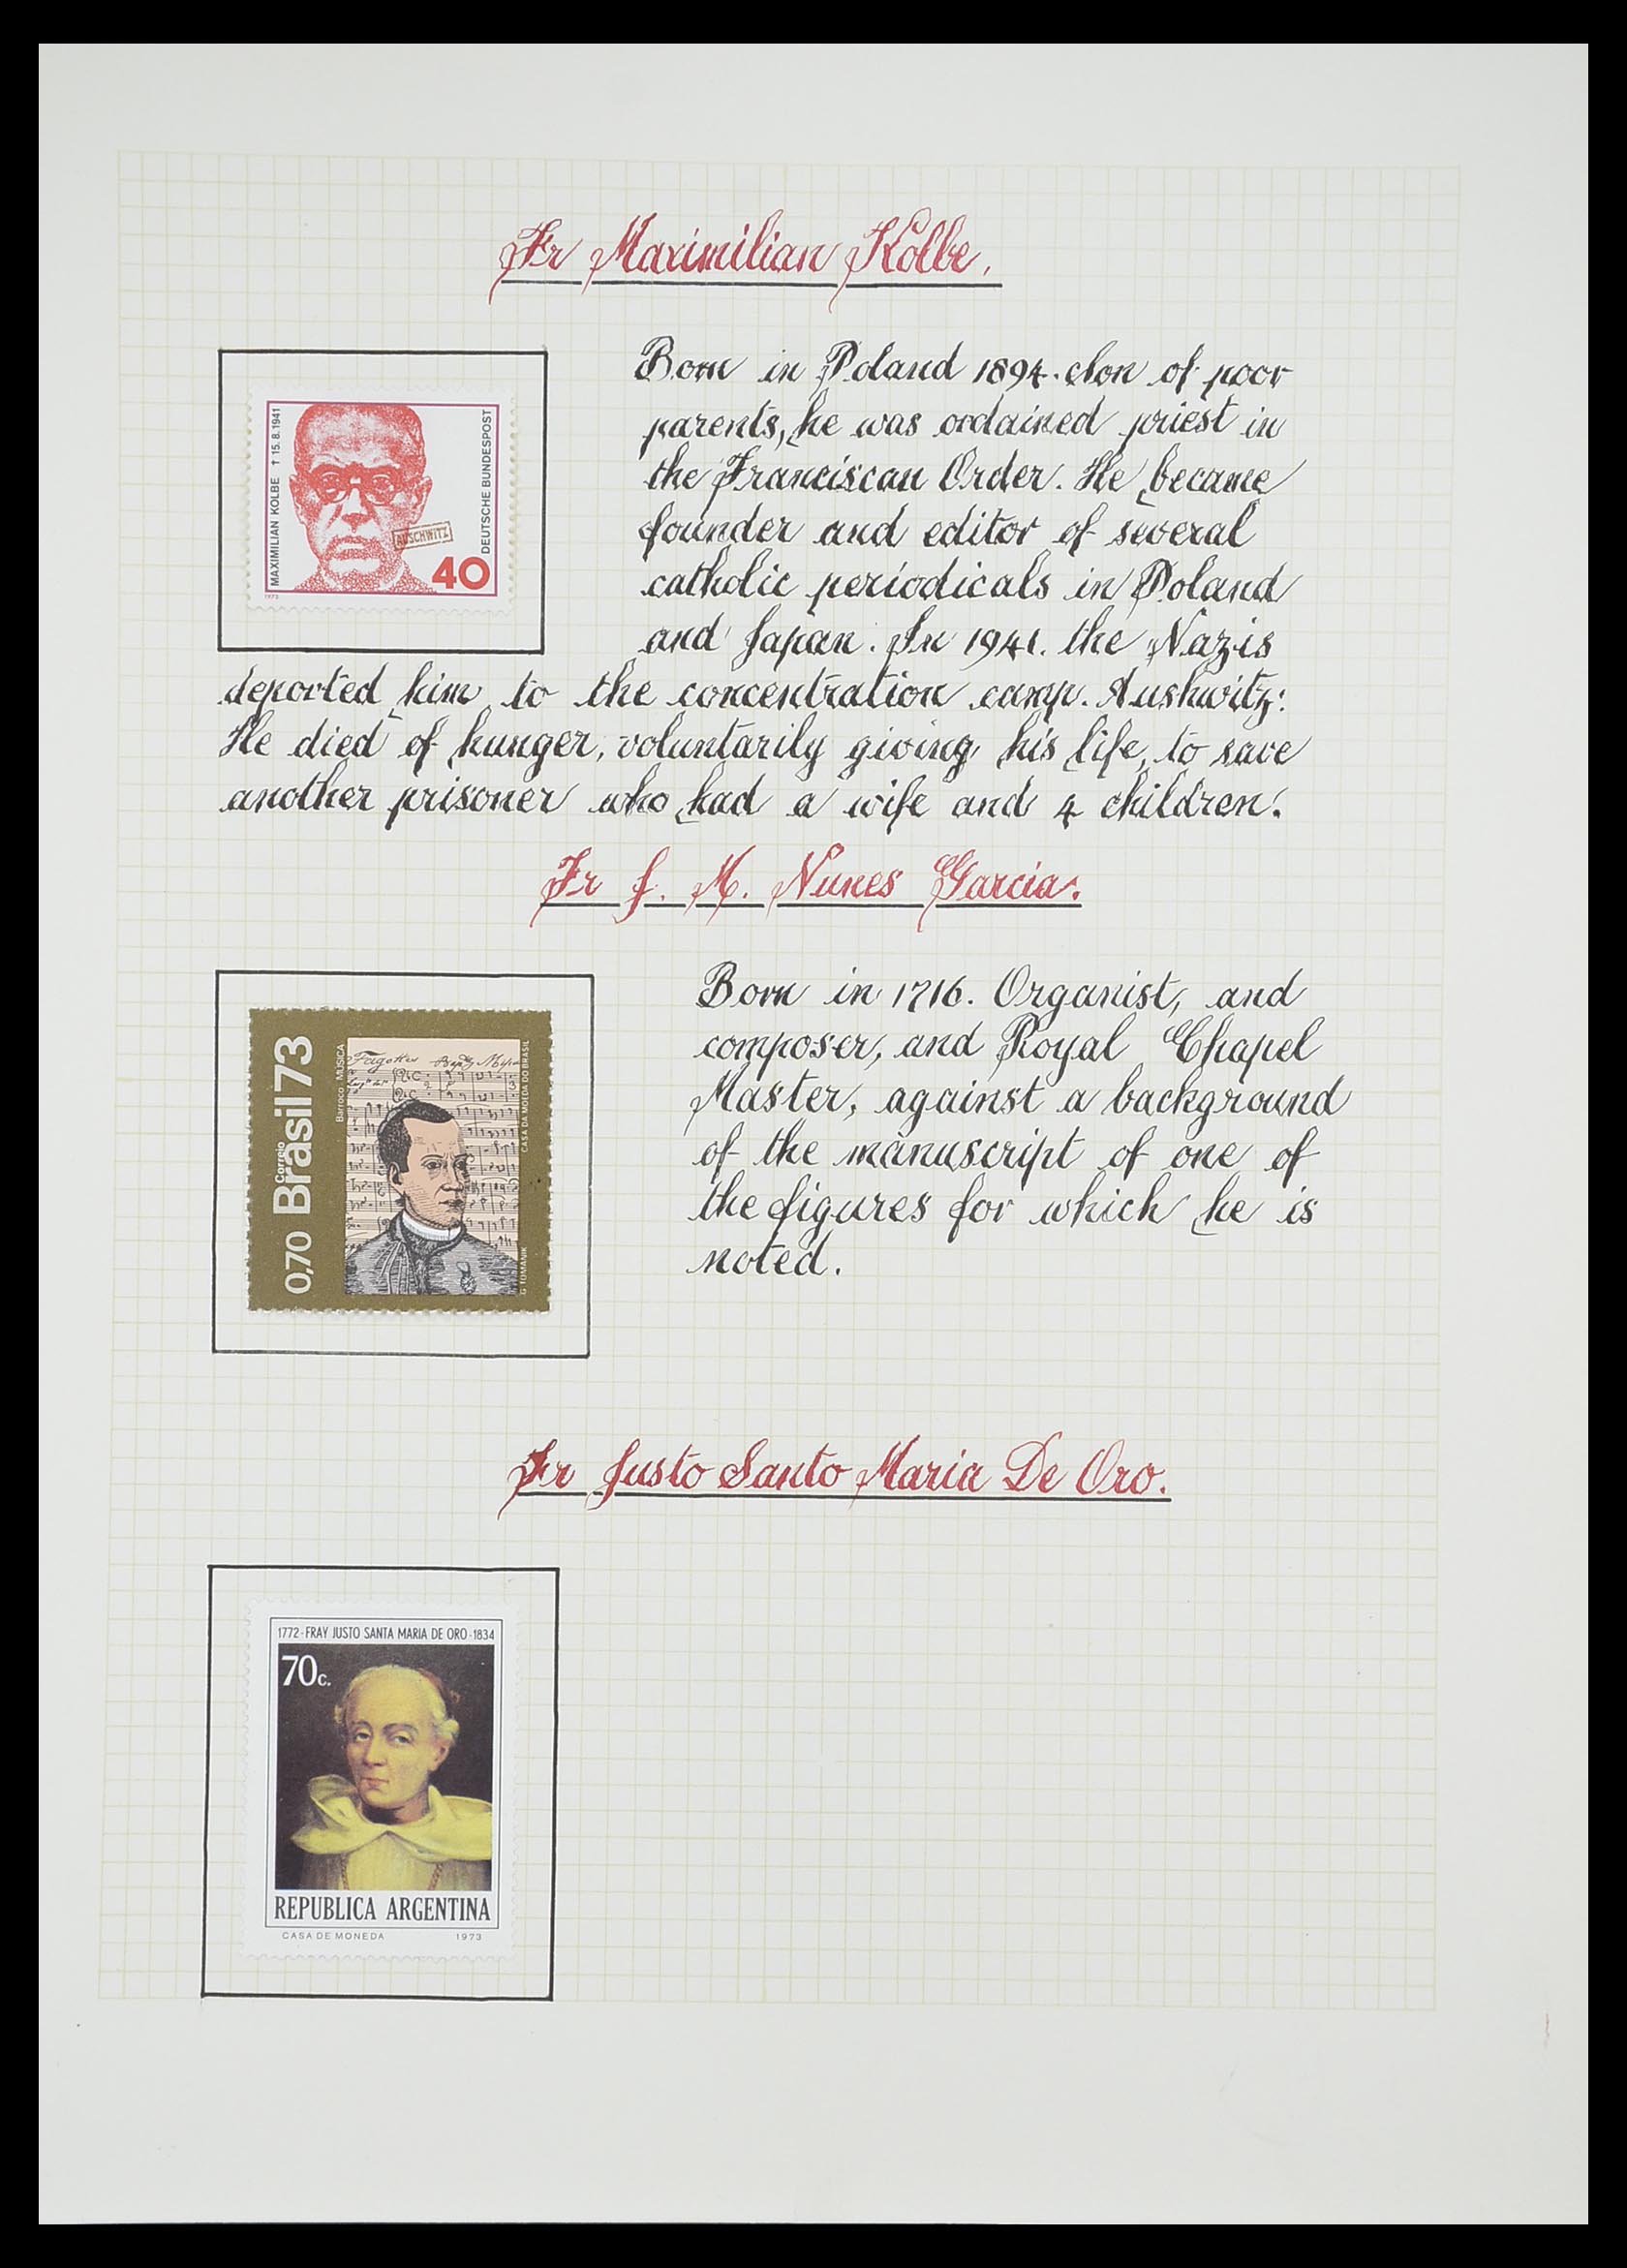 Fr Maximilian Kolbe.
MAXIMILIAN KOLBE † 15.8.1941
DEUTSCHE BUNDESPOST
AUSCHWITZ
40
1973
Born in Poland 1894. Son of poor
parents, he was ordained priest in
the Franciscan Order. He became
founder and editor of several
catholic periodicals in Poland
and Japan. In 1941. the Nazis
deported him to the concentration camp. Aushwitz:
He died of hunger, voluntarily giving his life, to save
another prisoner who had a wife and 4 children.
Fr J. M. Nunes Garcia.
0,70 Correio Brasil 73
Barroco MÚSICA
CASA DA MOEDA DO BRASIL
G. TOMANIK
Born in 1716. Organist, and
composer, and Royal Chapel
Master, against a background
of the manuscript of one of
the figures for which he is
noted.
Fr Justo Santo Maria De Oro.
1772·FRAY JUSTO SANTA MARIA DE ORO·1834
70c.
REPUBLICA ARGENTINA
CASA DE MONEDA 1973